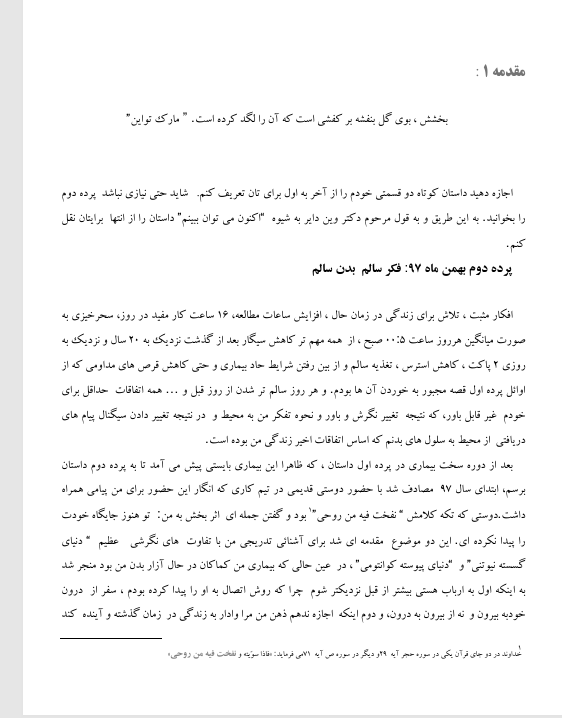 مقدمه ۱ :
بخشش ، بوی گل بنفشه بر کفشی است که آن را لگد کرده است. " مارک تواین"
اجازه دهید داستان کوتاه دو قسمتی خودم را از آخر به اول برای تان تعریف کنم. شاید حتی نیازی نباشد پرده دوم
را بخوانید. به این طریق و به قول مرحوم دکتر وین دایر به شیوه "اکنون می توان ببینم" داستان را از انتها برایتان نقل
کنم.
پرده دوم بهمن ماه ۹۷: فکر سالم بدن سالم
افکار مثبت ، تلاش برای زندگی در زمان حال ، افزایش ساعات مطالعه، ۱۶ ساعت کار مفید در روز، سحرخیزی به
صورت میانگین هرروز ساعت ۰۰:۵ صبح ، از همه مهم تر کاهش سیگار بعد از گذشت نزدیک به ۲۰ سال و نزدیک به
روزی ۲ پاکت ، کاهش استرس ، تغذیه سالم و از بین رفتن شرایط حاد بیماری و حتی کاهش قرص های مداومی که از
اوائل پرده اول قصه مجبور به خوردن آن ها بودم. و هر روز سالم تر شدن از روز قبل و ... همه اتفاقات حداقل برای
خودم غیر قابل باور، که نتیجه تغییر نگرش و باور و نحوه تفکر من به محیط و در نتیجه تغییر دادن سیگنال پیام های
دریافتی از محیط به سلول های بدنم که اساس اتفاقات اخیر زندگی من بوده است.
بعد از دوره سخت بیماری در پرده اول داستان ، که ظاهرا این بیماری بایستی پیش می آمد تا به پرده دوم داستان
برسم، ابتدای سال ۹۷ مصادف شد با حضور دوستی قدیمی در تیم کاری که انگار این حضور برای من پیامی همراه
داشت.دوستی که تکه کلامش " نفخت فیه من روحی"۱ بود و گفتن جمله ای اثر بخش به من: تو هنوز جایگاه خودت
را پیدا نکرده ای. این دو موضوع مقدمه ای شد برای آشنائی تدریجی من با تفاوت های نگرشی عظیم " دنیای
گسسته نیوتنی" و "دنیای پیوسته کوانتومی" ، در عین حالی که بیماری من کماکان در حال آزار بدن من بود منجر شد
به اینکه اول به ارباب هستی بیشتر از قبل نزدیکتر شوم چرا که روش اتصال به او را پیدا کرده بودم ، سفر از درون
خودبه بیرون و نه از بیرون به درون، و دوم اینکه اجازه ندهم ذهن من مرا وادار به زندگی در زمان گذشته و آینده کند
۱ خداوند در دو جای قرآن یکی در سوره حجر آیه ۲۹و دیگر در سوره ص آیه ۷۱می فرماید: «فاذا سوّیته و نفخت فیه من روحی»